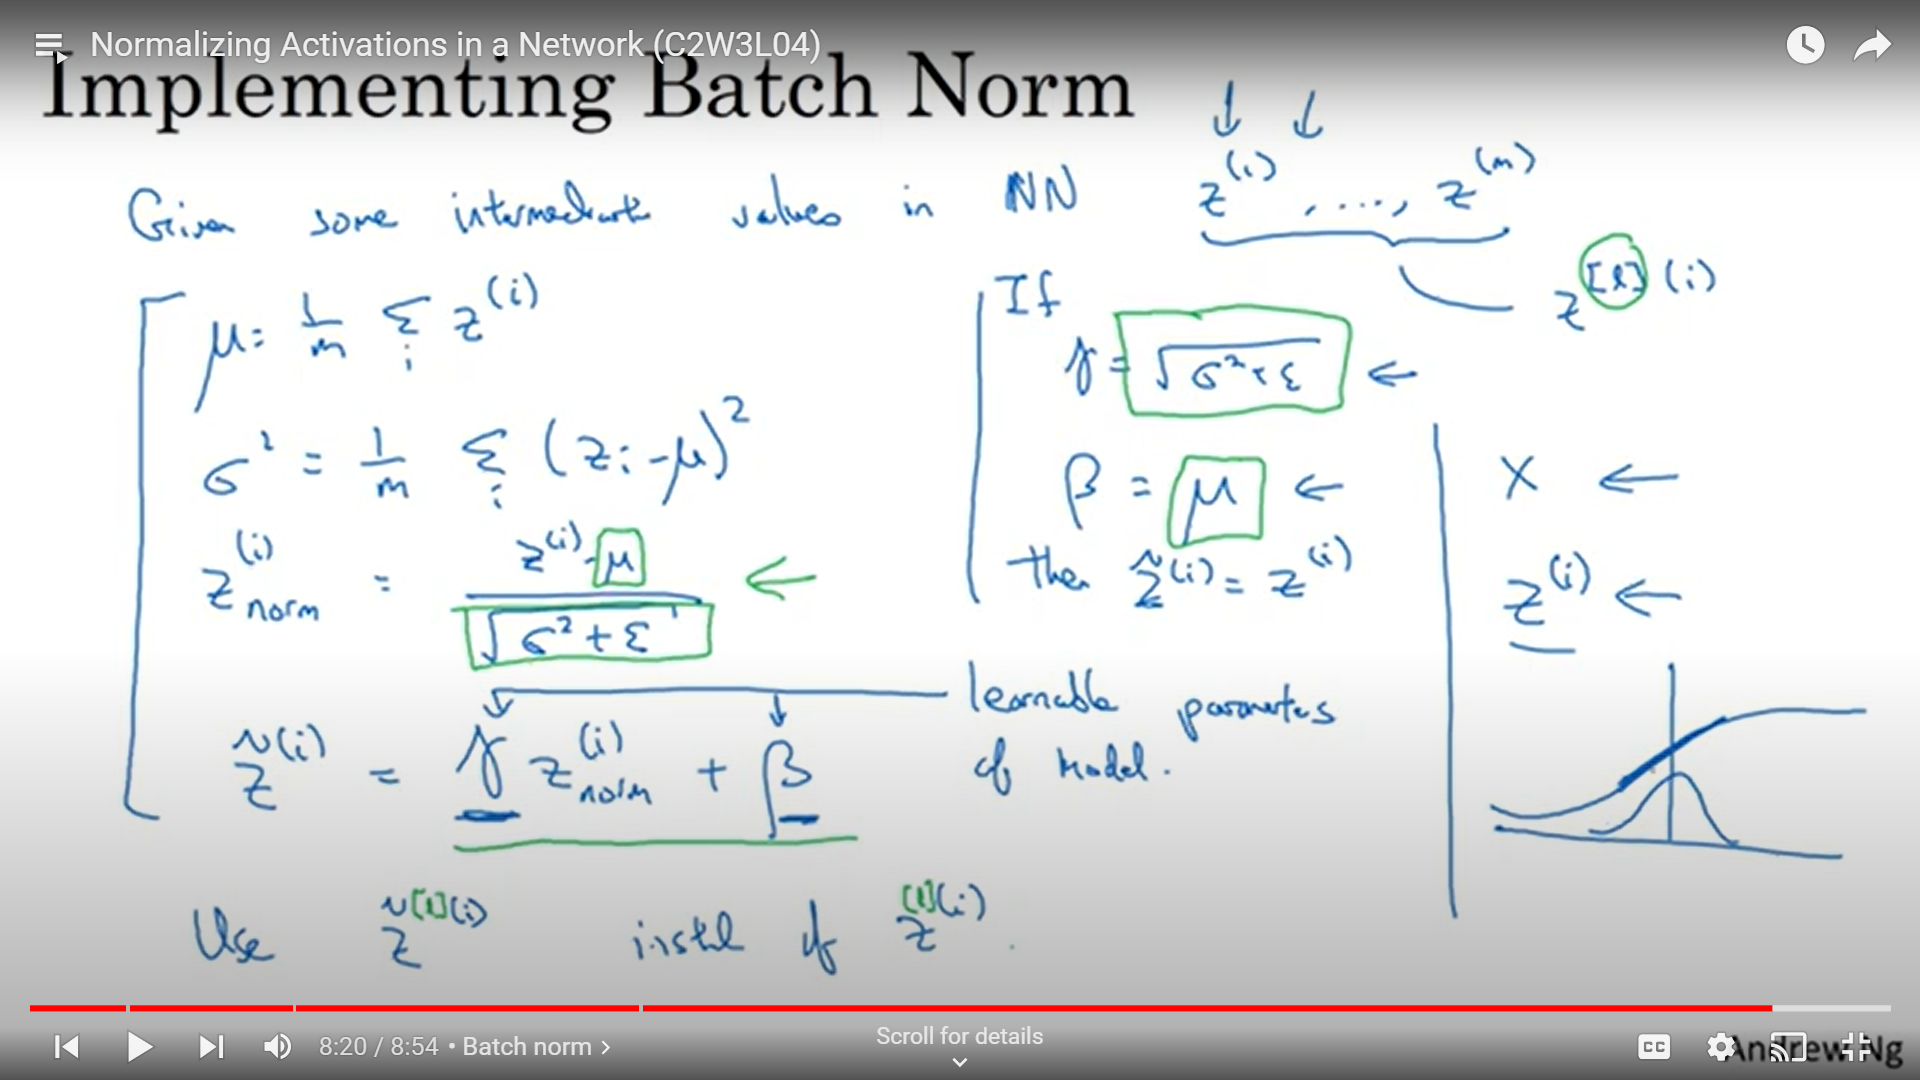 Normalizing Activations in a Network (C2W3L04)
Implementing Batch Norm
Given some intermediate values in NN z^(i), ..., z^(m)
z^[l](i)
μ = 1/m Σ_i z^(i)
σ² = 1/m Σ_i (z_i - μ)²
z_norm^(i) = (z^(i) - μ) / √(σ² + ε)
z̃^(i) = γ z_norm^(i) + β
If
γ = √(σ² + ε) ←
β = μ ←
then z̃^(i) = z^(i)
learnable parameters
of model.
X ←
z^(i) ←
Use z̃^[l](i) instead of z^[l](i).
8:20 / 8:54 • Batch norm >
Scroll for details
CC
Andrew Ng